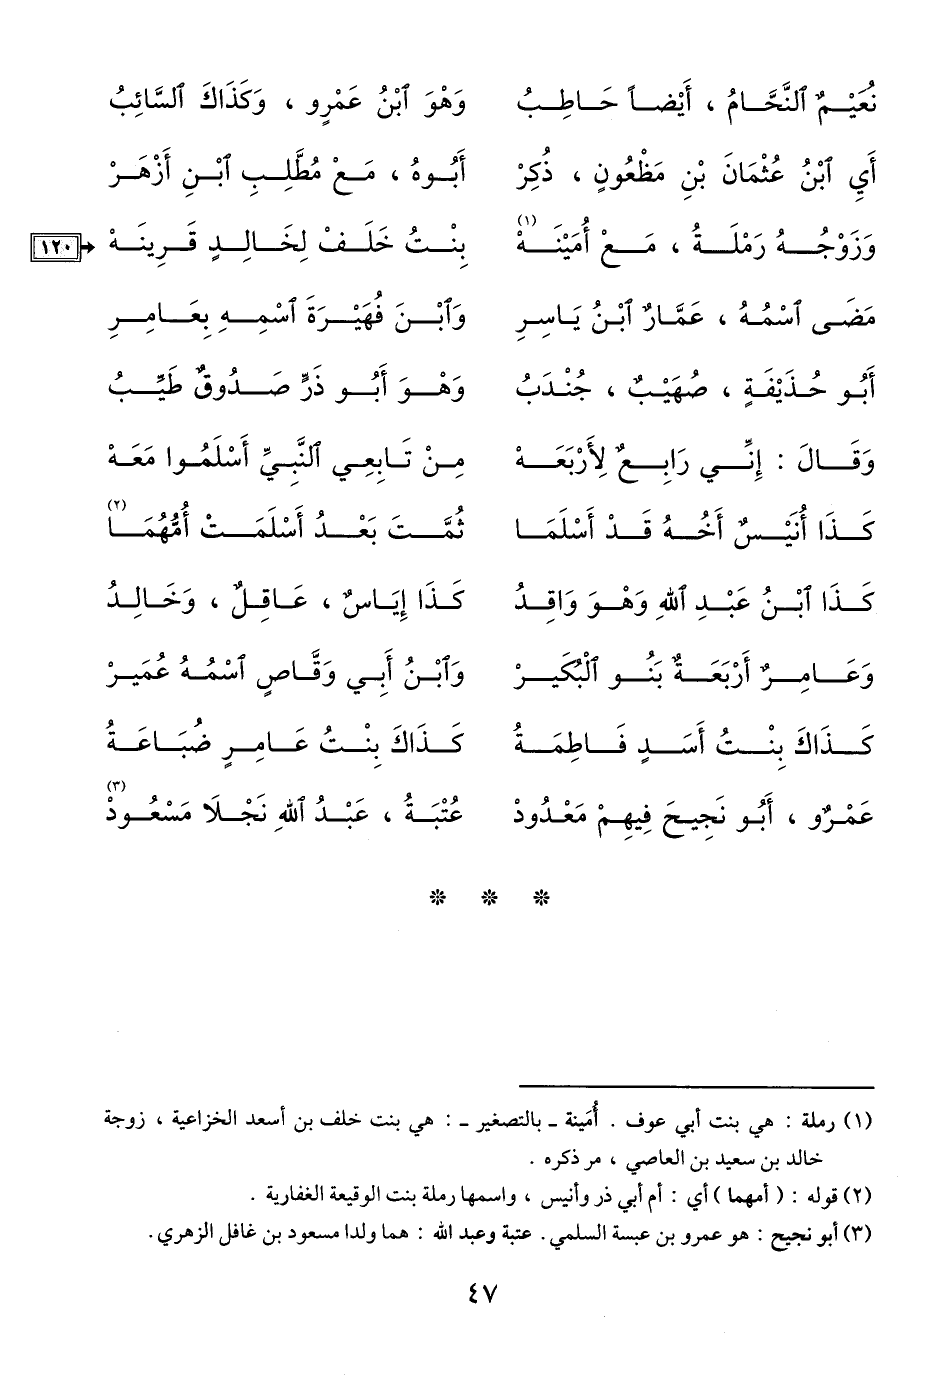 نُعَيْمٌ ٱلنَّحَّامُ ، أَيْضاً حَاطِبُ وَهْوَ ٱبْنُ عَمْرٍو ، وَكَذَاكَ ٱلسَّائِبُ
أَيِ ٱبْنُ عُثْمَانَ بْنِ مَظْعُونٍ ، ذُكِرْ أَبُوهُ ، مَعْ مُطَّلِبِ ٱبْنِ أَزْهَرْ
وَزَوْجُهُ رَمْلَةُ ، مَعْ أُمَيْنَهْ (١) بِنْتُ خَلَفْ لِخَالِدٍ قَرِينَهْ ١٢٠
مَضَى ٱسْمُهُ ، عَمَّارٌ ٱبْنُ يَاسِرِ وَٱبْنَ فُهَيْرَةَ ٱسْمِهِ بِعَامِرِ
أَبُو حُذَيْفَةٍ ، صُهَيْبٌ ، جُنْدَبُ وَهْوَ أَبُو ذَرٍّ صَدُوقٌ طَيِّبُ
وَقَالَ : إِنِّي رَابِعٌ لِأَرْبَعَهْ مِنْ تَابِعِي ٱلنَّبِيِّ أَسْلَمُوا مَعَهْ
كَذَا أُنَيْسٌ أَخُهُ قَدْ أَسْلَمَا ثُمَّتَ بَعْدُ أَسْلَمَتْ أُمُّهُمَا (٢)
كَذَا ٱبْنُ عَبْدِ ٱللهِ وَهْوَ وَاقِدُ كَذَا إِيَاسٌ ، عَاقِلٌ ، وَخَالِدُ
وَعَامِرٌ أَرْبَعَةٌ بَنُو ٱلْبُكَيْرْ وَٱبْنُ أَبِي وَقَّاصٍ ٱسْمُهُ عُمَيْرْ
كَذَاكَ بِنْتُ أَسَدٍ فَاطِمَةُ كَذَاكَ بِنْتُ عَامِرٍ ضُبَاعَةُ
عَمْرٌو ، أَبُو نَجِيحَ فِيهِمْ مَعْدُودْ عُتْبَةُ ، عَبْدُ ٱللهِ نَجْلَا مَسْعُودْ (٣)
* * *
(١) رملة : هي بنت أبي عوف . أُمَينة ـ بالتصغير ـ : هي بنت خلف بن أسعد الخزاعية ، زوجة
خالد بن سعيد بن العاصي ، مر ذكره .
(٢) قوله : ( أمهما ) أي : أم أبي ذر وأنيس ، واسمها رملة بنت الوقيعة الغفارية .
(٣) أبو نجيح : هو عمرو بن عبسة السلمي . عتبة وعبد الله : هما ولدا مسعود بن غافل الزهري .
٤٧